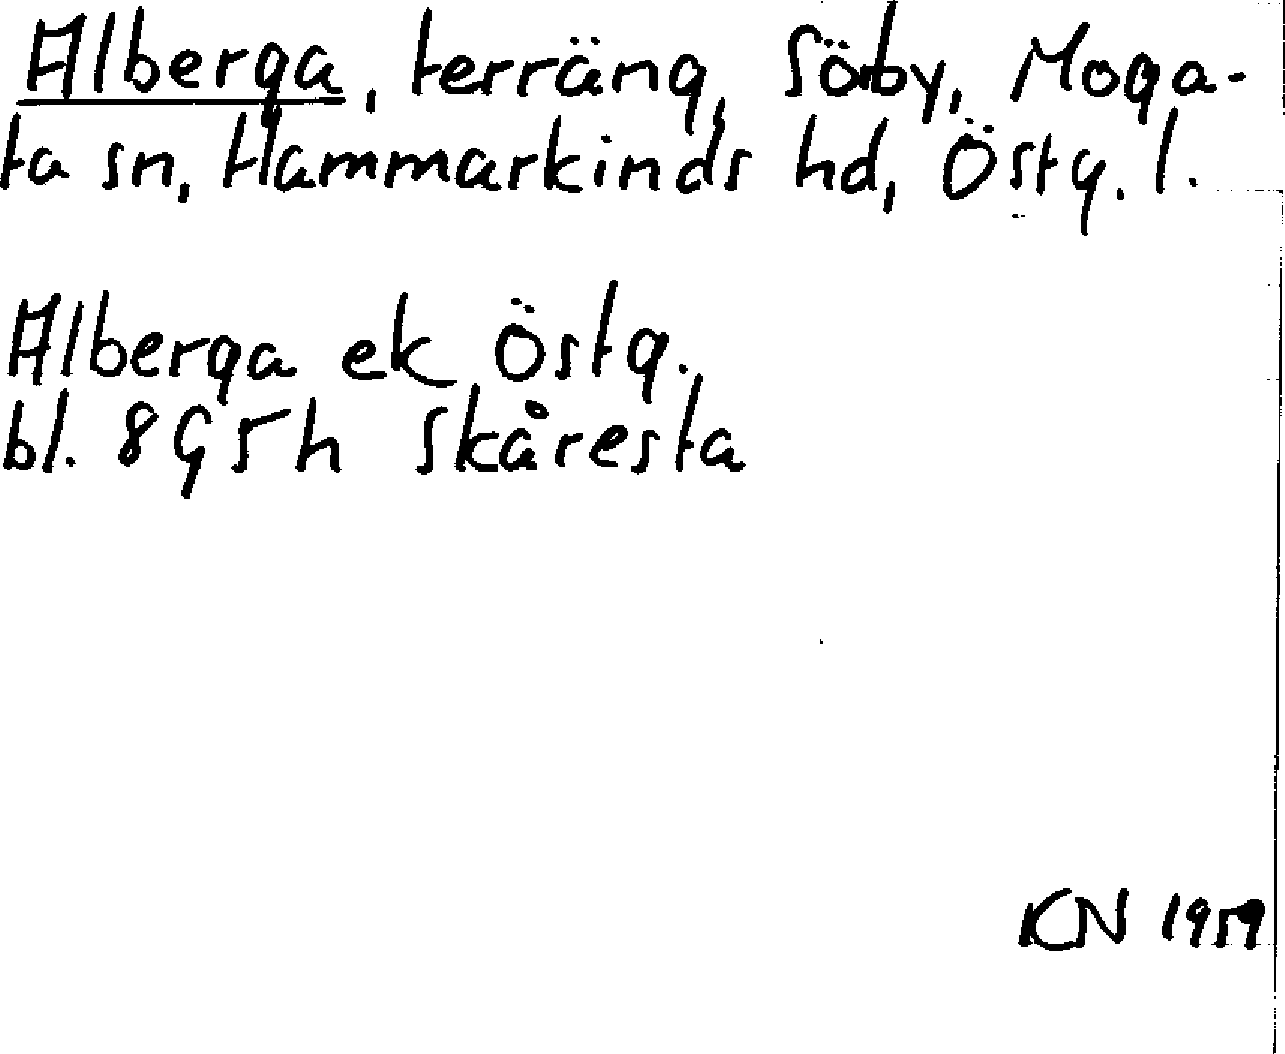 Alberga, terräng, Sörby, Moga-
ta sn, Hammarkinds hd, Östg. l.
Alberga ek Östg.
bl. 8G5h Skåresta
KN 1959